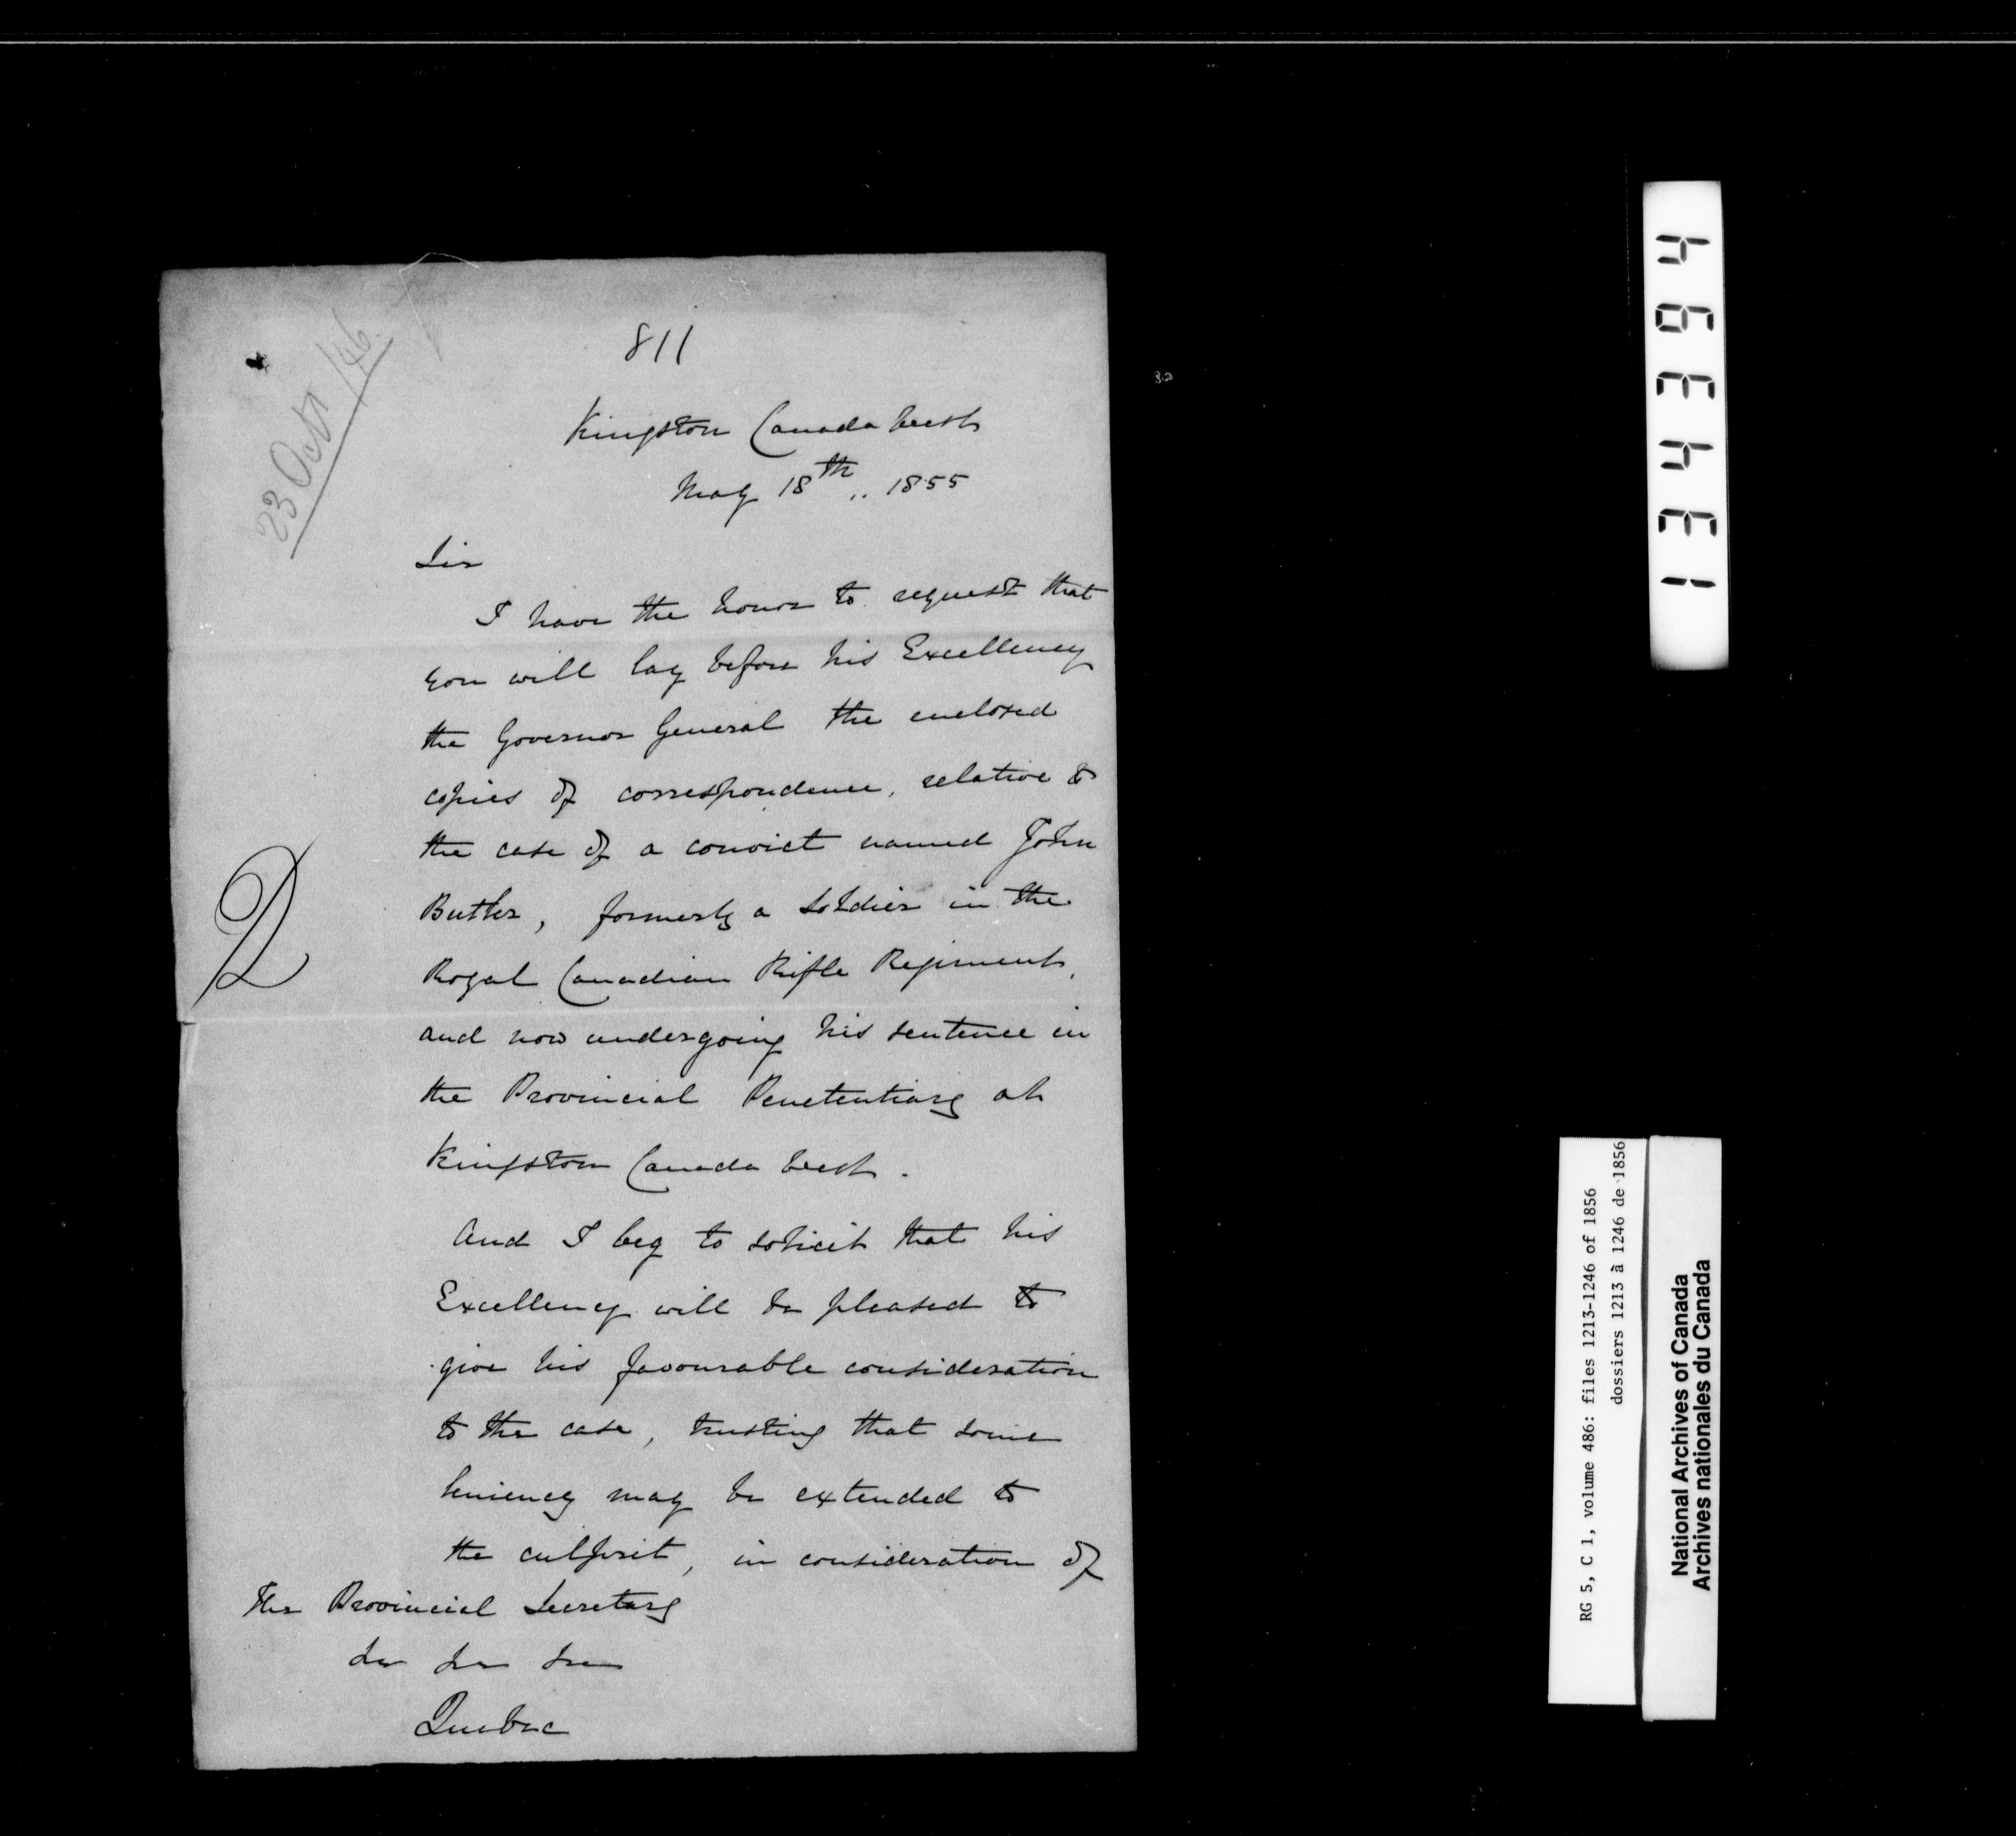 811
23 Octr /46.
Kingston Canada West
May 18th,, 1855
Sir
I have the honor to request that
you will lay before his Excellency
the Governor General the enclosed
copies of correspondence, relative to
the case of a convict named John
Butler, formerly a soldier in the
Royal Canadian Rifle Regiment,
and now undergoing his sentence in
the Provincial Penetentiary at
Kingston Canada West.
And I beg to solicit that his
Excellency will be pleased to
give his favourable consideration
to the case, trusting that some
leniency may be extended to
the culprit, in consideration of
The Provincial Secretary
&c &c &c
Quebec
D
134394
RG 5, C 1, volume 486: files 1213-1246 of 1856
dossiers 1213 à 1246 de 1856
National Archives of Canada
Archives nationales du Canada